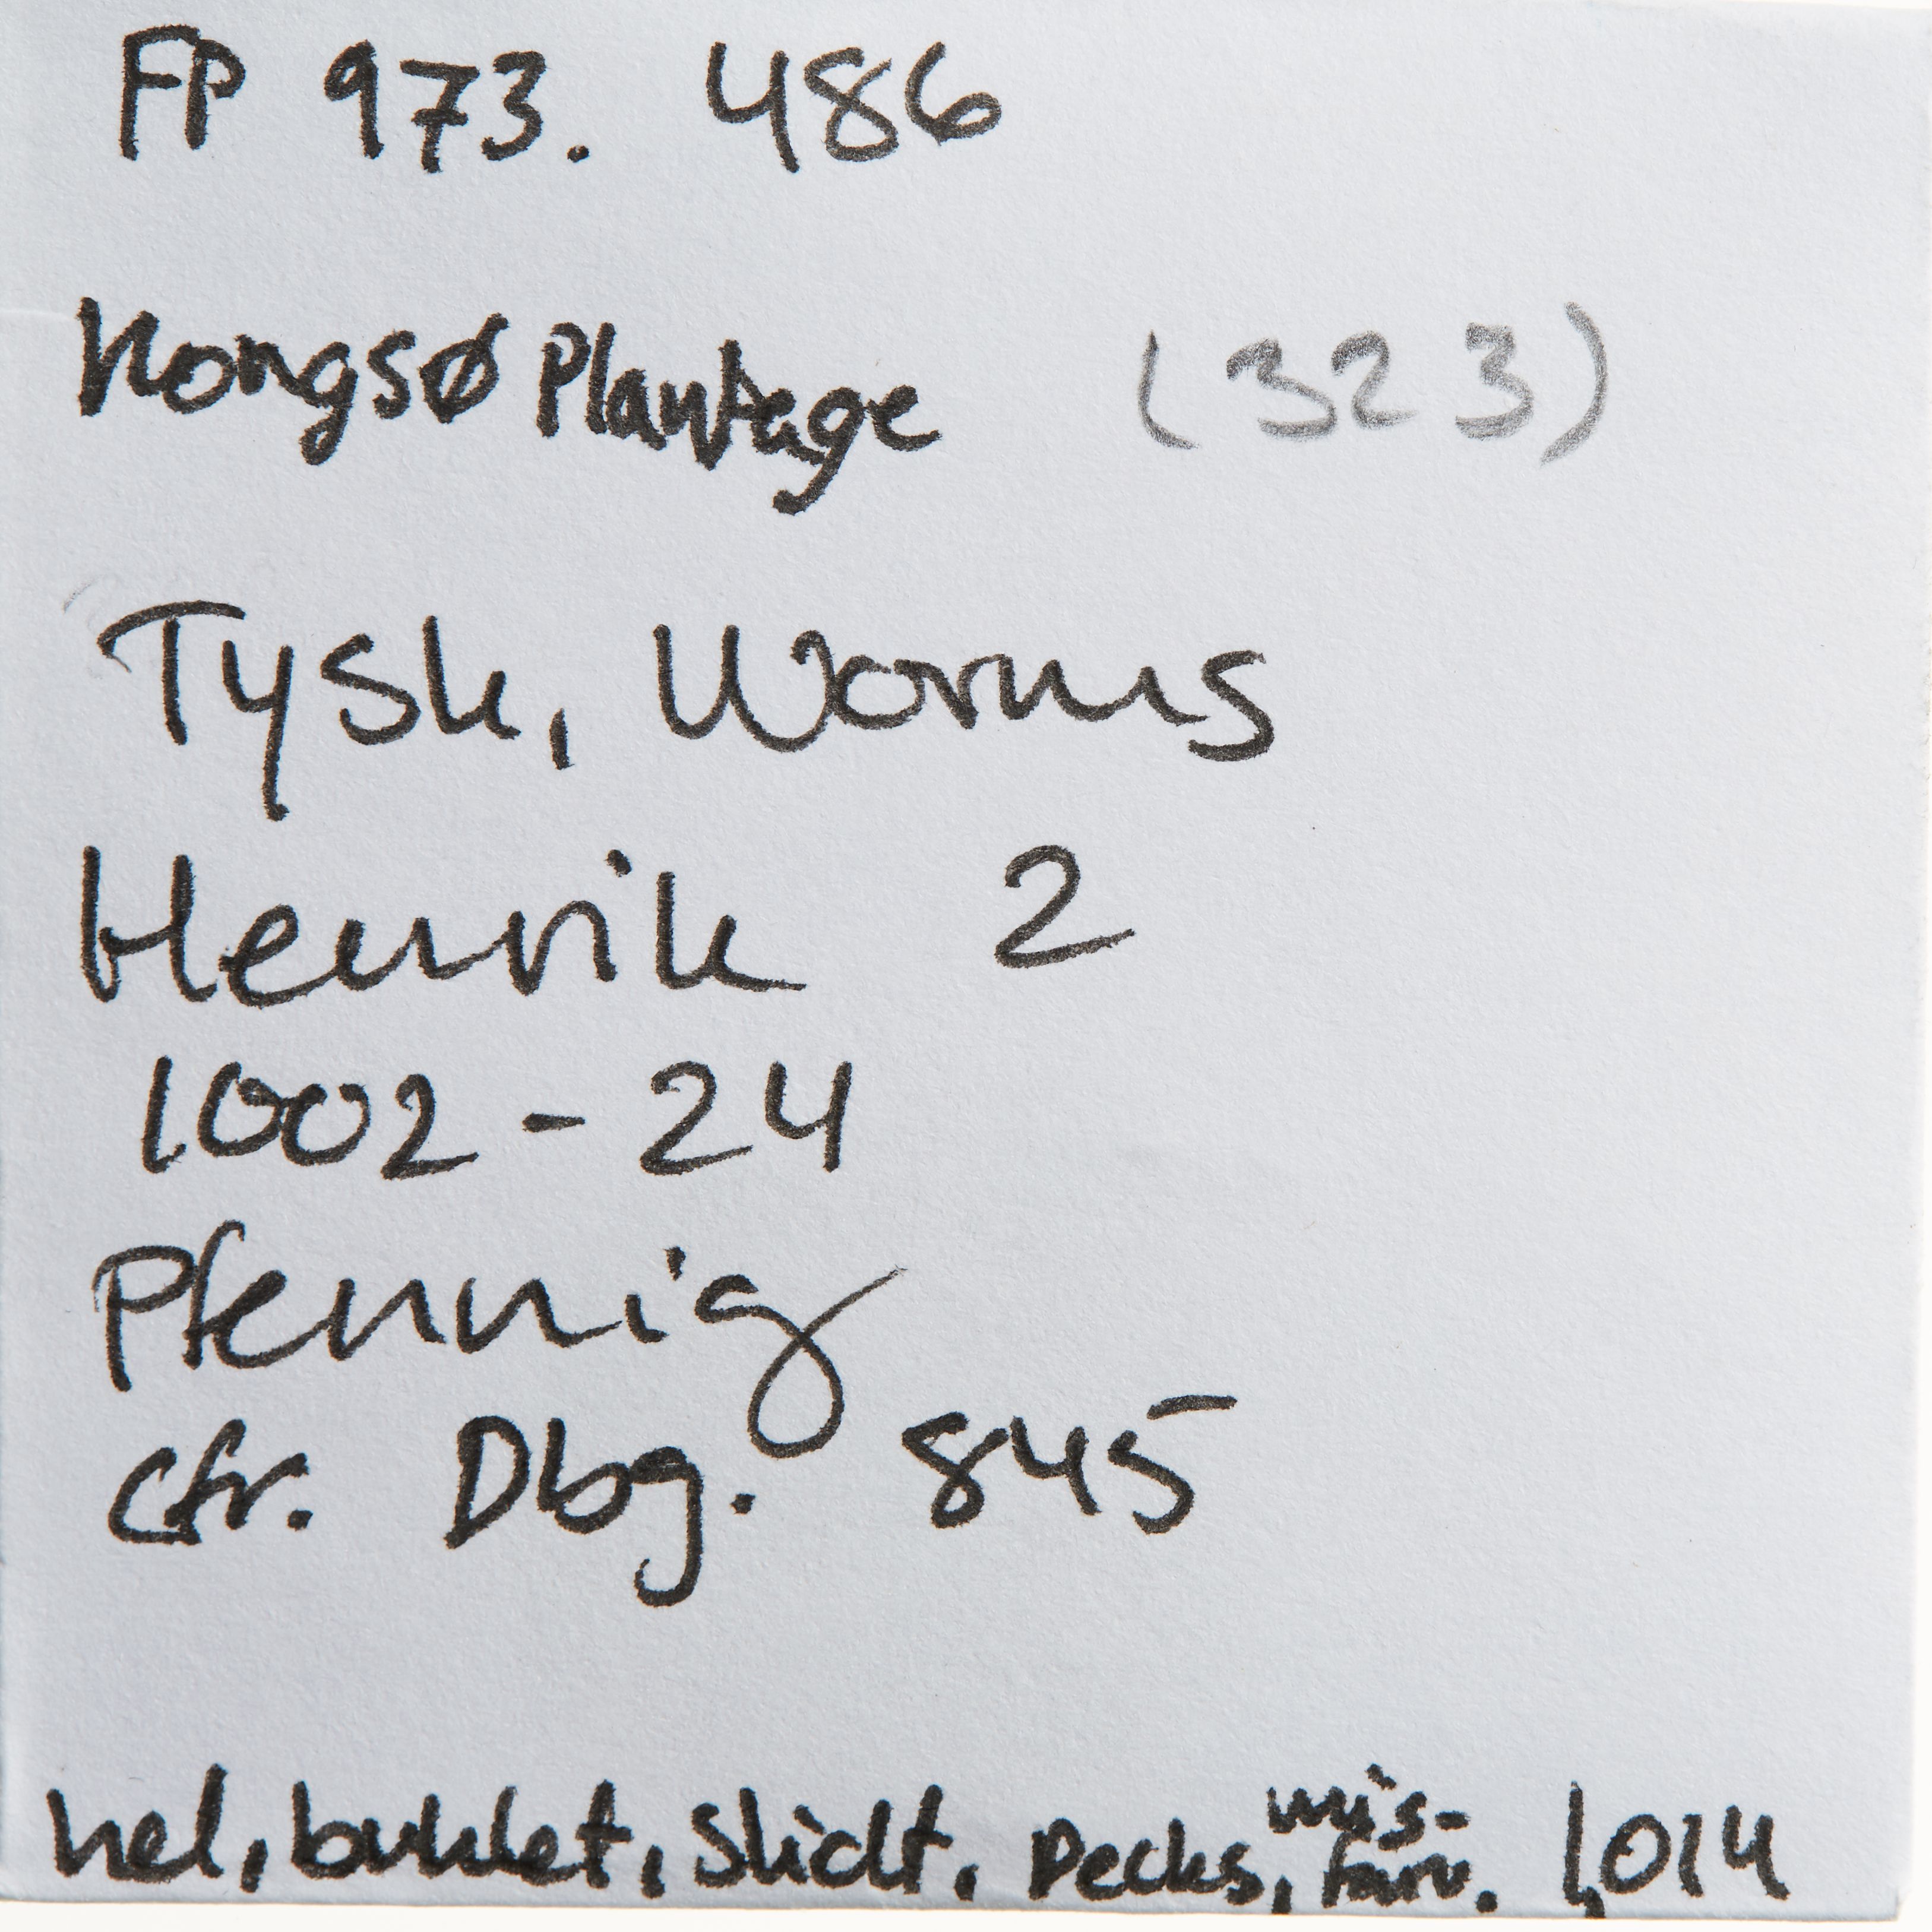 FP 973. 486
Kongsø Plantage (323)
Tysk, Worms
Henrik 2
1002-24
Pfennig
cfr. Dbg. 845
hel, buklet, slidt, Pecks, mis-
farv. 1,014